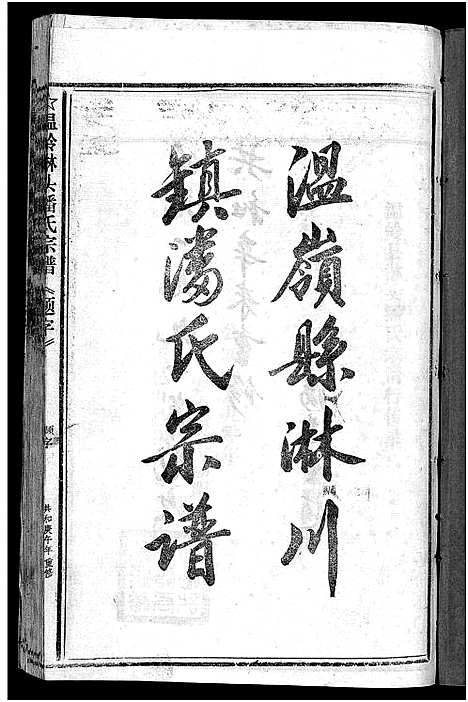 溫嶺縣淋川
鎮潘氏宗譜
☆温岭淋头潘氏宗谱《题字》
题字
共和庚午年重修